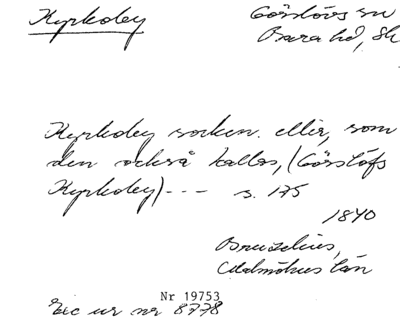 Kyrkoby
Görslövs sn
Bara hd, Sk
Kyrkoby socken. eller, som
den också kallas, (Görslöfs
Kyrkoby) --- s. 175
1840
Bruzelius,
Malmöhus län
Nr 19753
Exc ur nr 8778